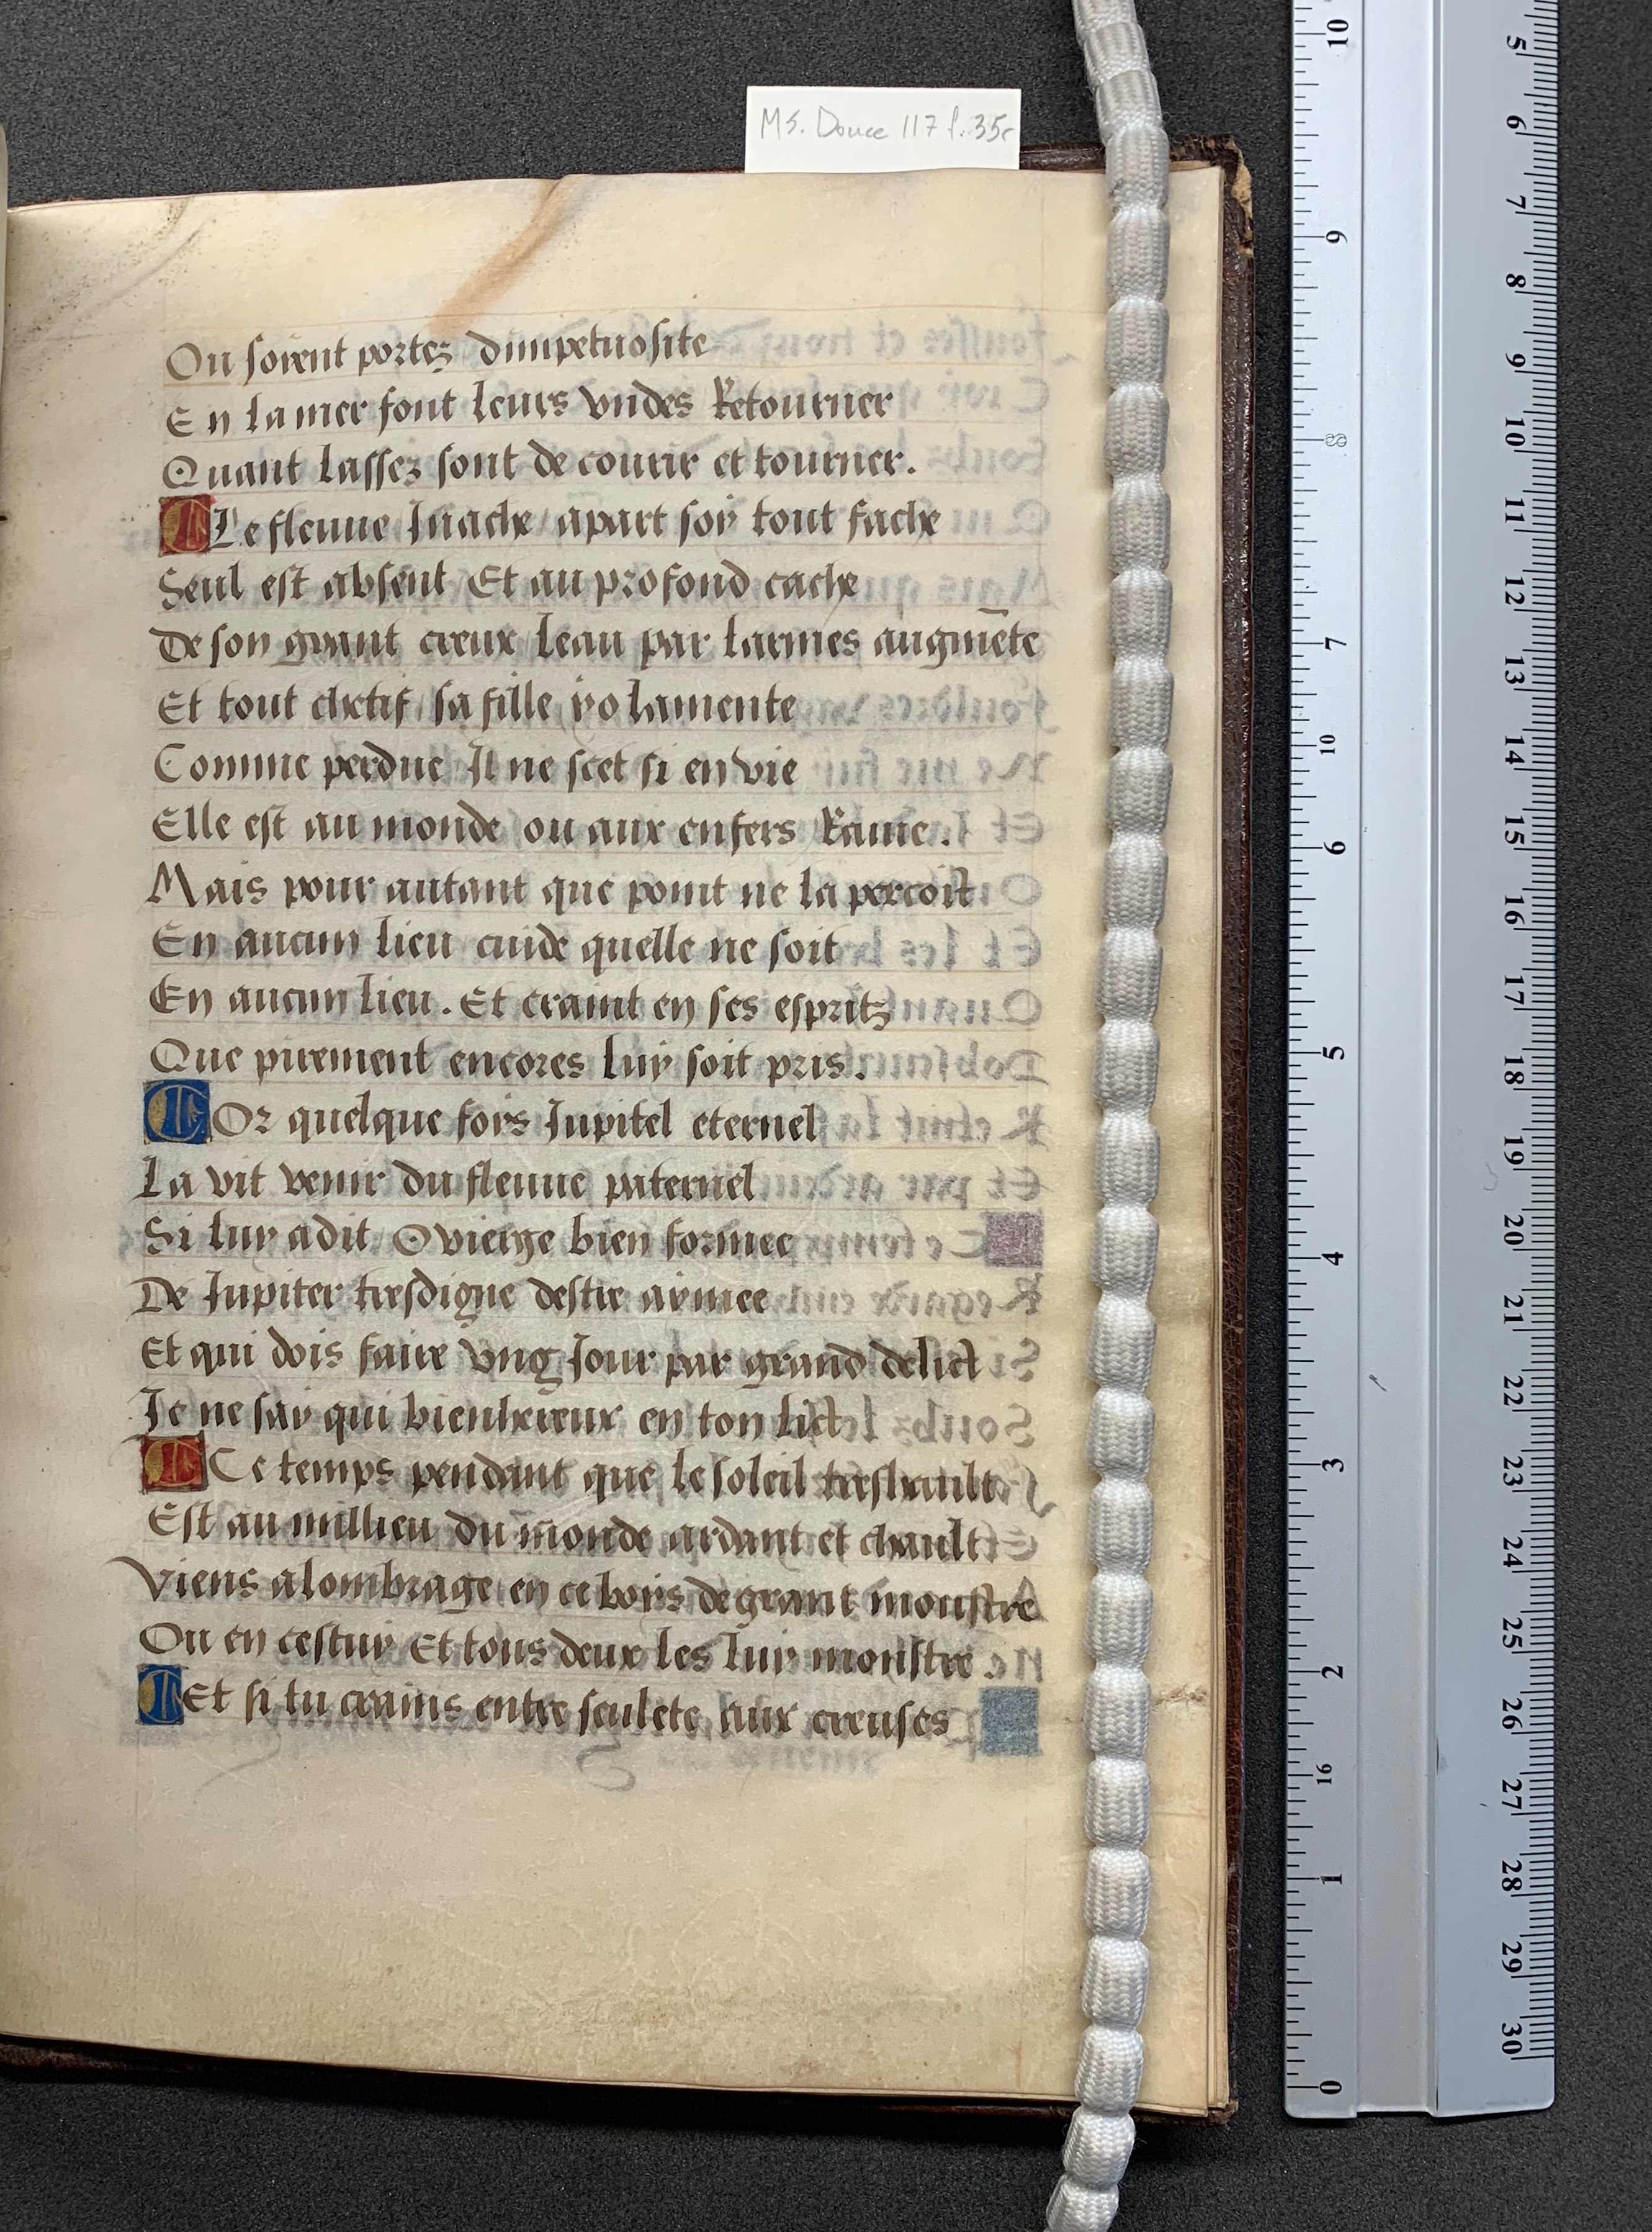 Ms. Douce 117 f. 35r
Ou soient portez dimpetuosite
En la mer font leurs vndes Retourner
Quant lassez sont de courir et tourner.
Le fleuue Inache apart soy tout fache
Seul est absent Et au profond cache
De son grant creux leau par larmes augmēte
Et tout chetif sa fille yo lamente
Comme perdue Il ne scet si en vie
Elle est au monde ou aux enfers Rauie.
Mais pour autant que point ne la percoit
En aucun lieu cuide quelle ne soit
En aucun lieu. Et craint en ses espritz
Que pirement encores luy soit pris.
Or quelque foys Iupitel eternel
La vit venir du fleuue paternel
Si luy a dit O vierge bien formee
De Iupiter tresdigne destre aymee
Et qui dois faire vng Iour par grand delict
Ie ne say qui bienheureux en ton lict
Ce temps pendant que le soleil treshault
Est au millieu du monde ardant et chault
Viens a lombrage en ce boys de grant monstre
Ou en cestuy Et tous deux les luy monstre.
Et si tu crains entre seulete aux creuses
10
9
8
7
10
6
5
4
3
2
16
1
0
5
6
7
8
9
10
11
12
13
14
15
16
17
18
19
20
21
22
23
24
25
26
27
28
29
30